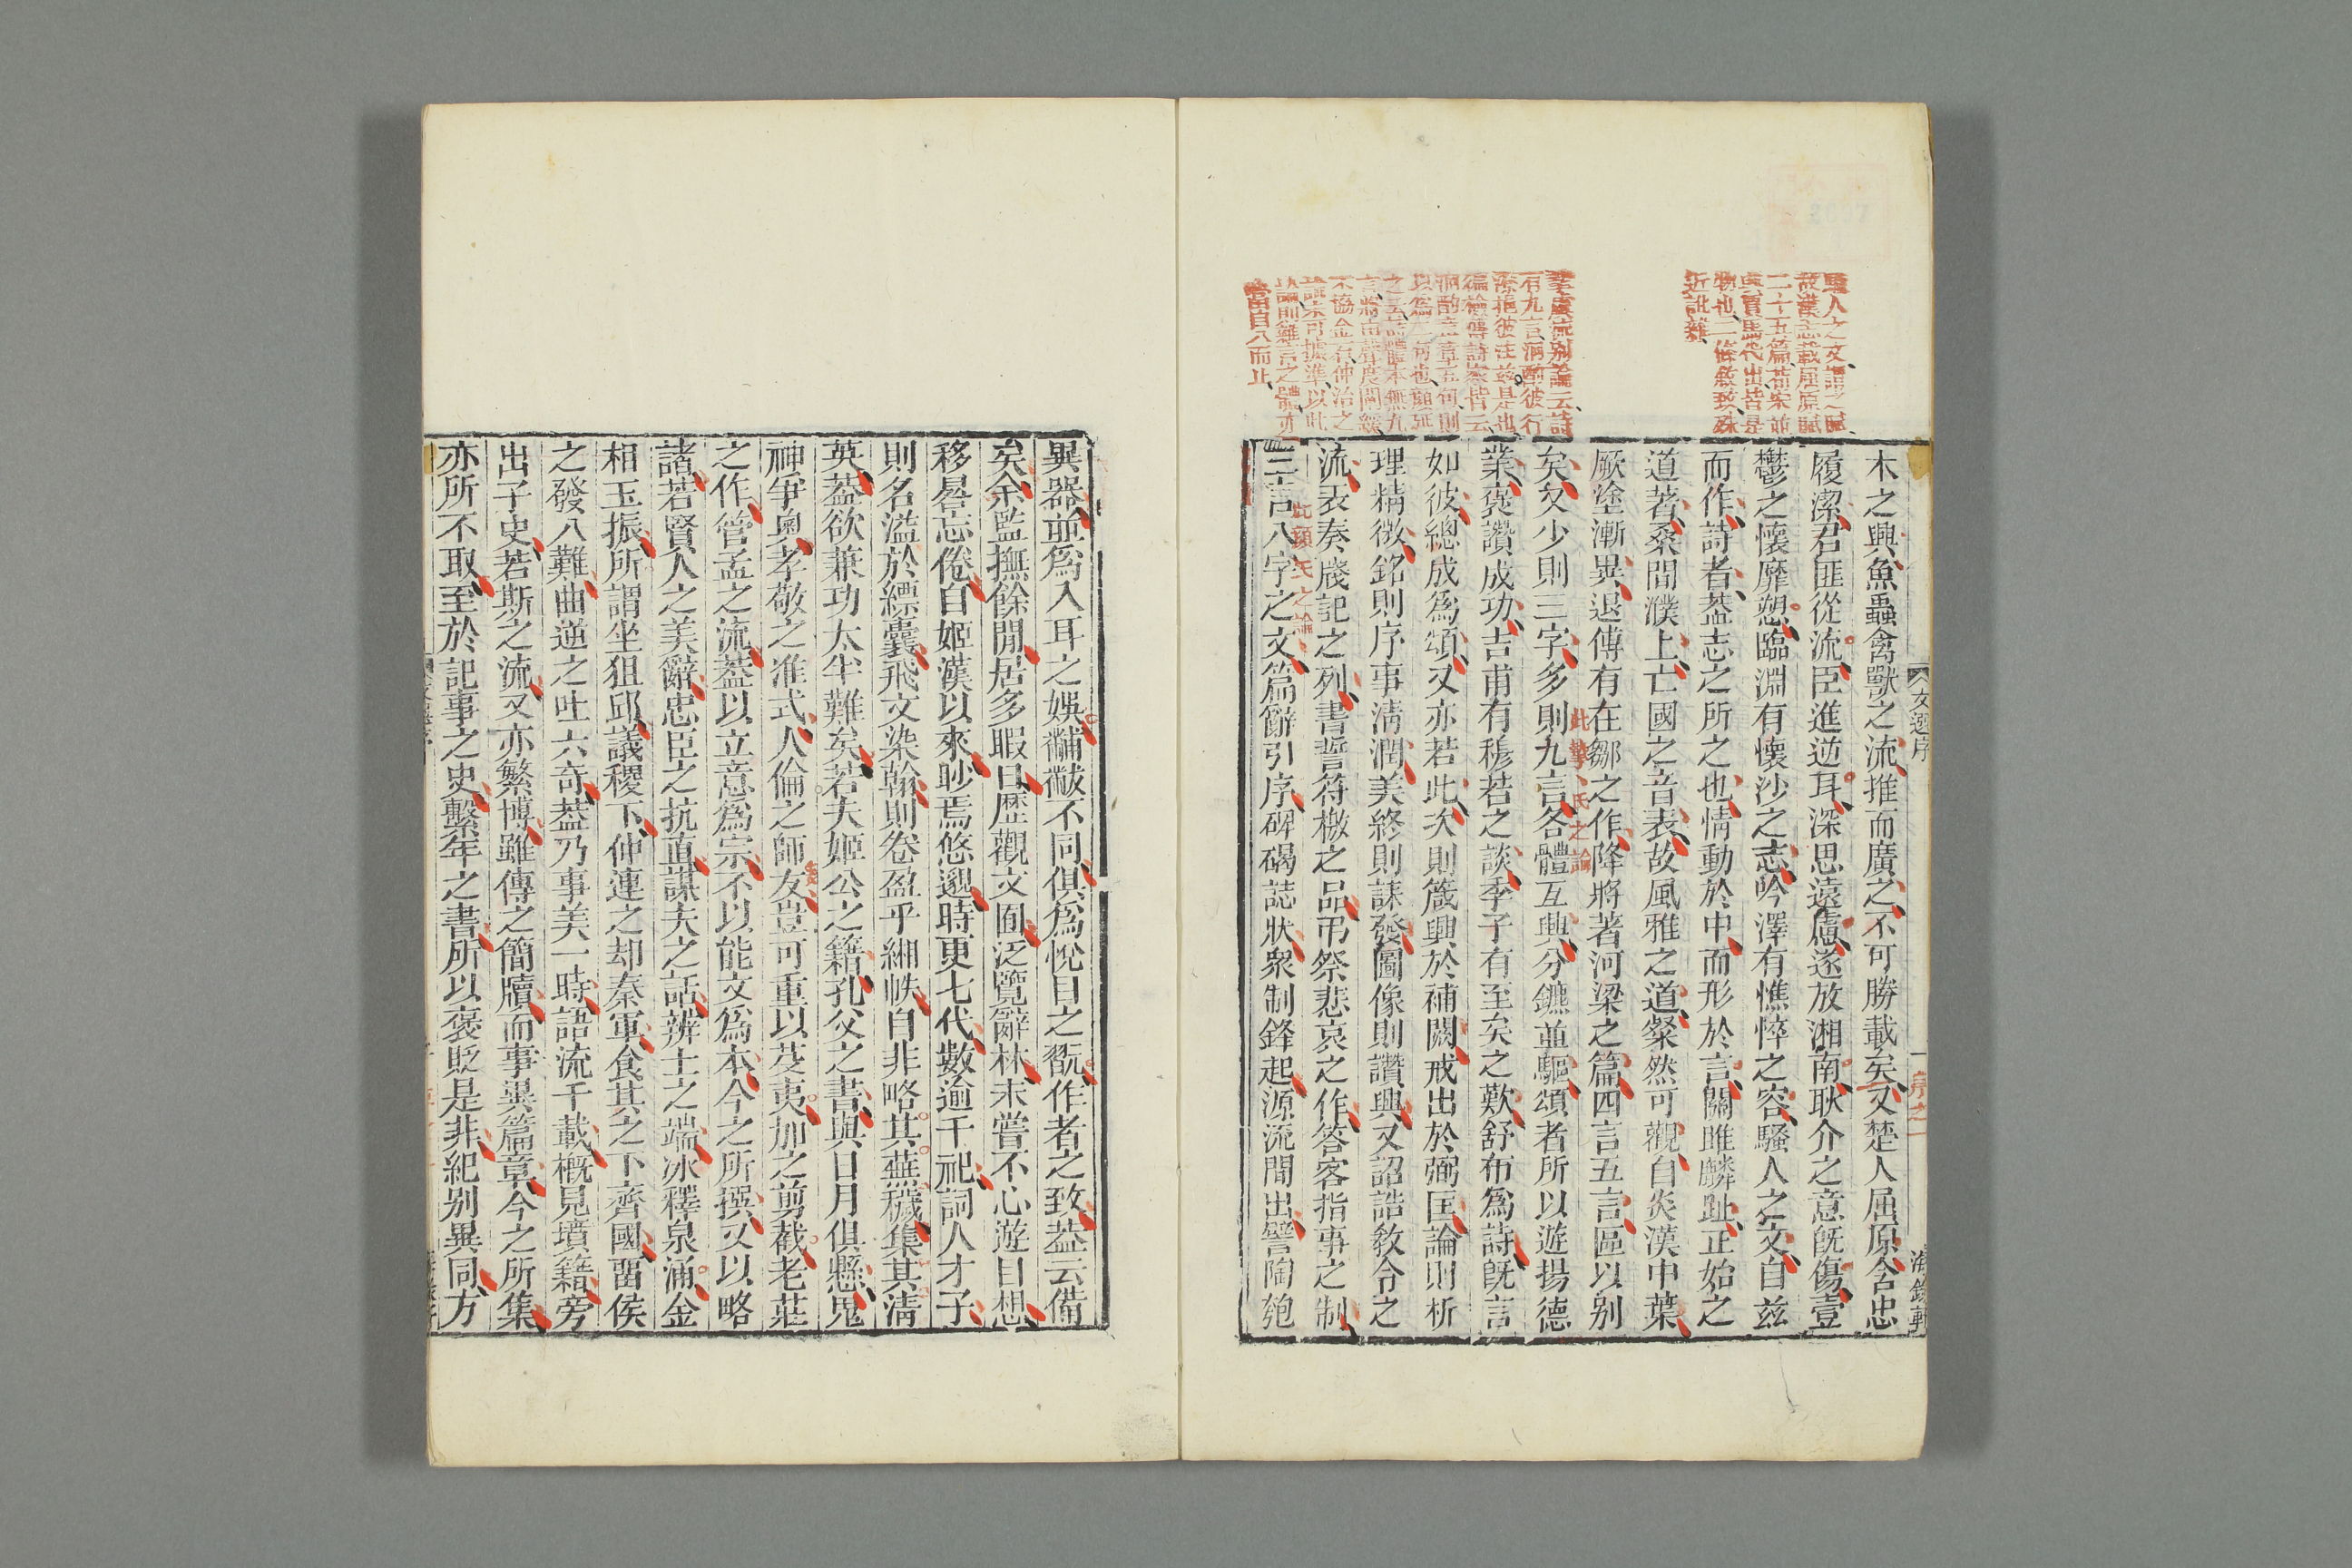 騷人之文謂之賦
故漢志載屈原賦
二十五篇荀宋並
與賈馬代出皆是
物也二條無致殊
近詆離
摯虞流别論云詩
有九言泂酌彼行
潦挹彼注兹是也
徧檢傳詩家皆云
泂酌三章章五句則
以爲二句也顔延
之云詩體本無九
言將由聲度闡緩
不協金石仲治之
論未可據準以此
三言八字之文
當自八而止
文選序
一
海錄軒
木之興魚蟲禽獸之流推而廣之不可勝載矣又楚人屈原含忠
履潔君匪從流臣進逆耳深思遠慮遂放湘南耿介之意旣傷壹
鬱之懷靡愬臨淵有懷沙之志吟澤有憔悴之容騷人之文自兹
而作詩者葢志之所之也情動於中而形於言關雎麟趾正始之
道著桑間濮上亡國之音表故風雅之道粲然可觀自炎漢中葉
厥塗漸異退傅有在鄒之作降將著河梁之篇四言五言區以别
矣又少則三字多則九言各體互興分鑣並驅頌者所以遊揚德
此摯氏之論
業褒讚成功吉甫有穆若之談季子有至矣之歎舒布爲詩旣言
如彼總成爲頌又亦若此次則箴興於補闕戒出於弼匡論則析
理精微銘則序事淸潤美終則誄發圖像則讚興又詔誥敎令之
流表奏牋記之列書誓符檄之品弔祭悲哀之作答客指事之制
此顔氏之論
三言八字之文篇辭引序碑碣誌狀衆制鋒起源流間出譬陶匏
異器並爲入耳之娛黼黻不同俱爲悅目之翫作者之致葢云備
矣余監撫餘閒居多暇日歷觀文囿泛覽辭林未嘗不心遊目想
移晷忘倦自姬漢以來眇焉悠邈時更七代數逾千祀詞人才子
則名溢於縹囊飛文染翰則卷盈乎緗帙自非略其蕪穢集其淸
英葢欲兼功太半難矣若夫姬公之籍孔父之書與日月俱懸鬼
神爭奥孝敬之准式人倫之師友豈可重以芟夷加之剪截老莊
之作管孟之流葢以立意爲宗不以能文爲本今之所撰又以略
諸若賢人之美辭忠臣之抗直謀夫之話辨士之端冰釋泉涌金
相玉振所謂坐狙邱議稷下仲連之却秦軍食其之下齊國畱侯
之發八難曲逆之吐六奇葢乃事美一時語流千載槪見墳籍旁
出子史若斯之流又亦繁博雖傳之簡牘而事異篇章今之所集
亦所不取至於記事之史繫年之書所以褒貶是非紀别異同方